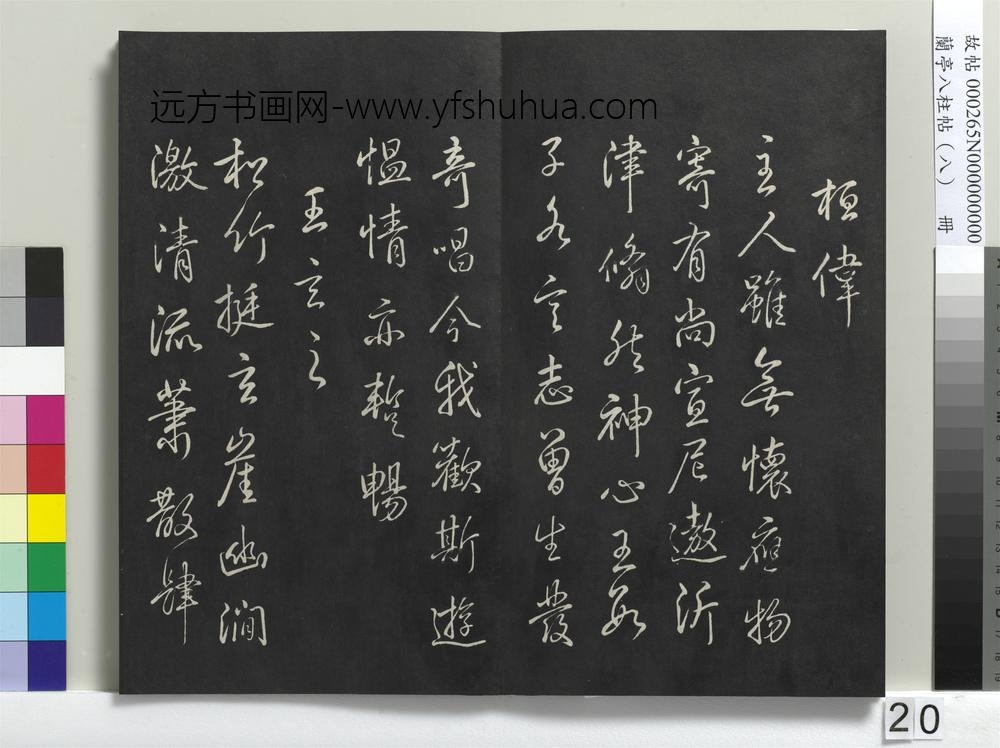 桓偉
主人雖無懷應物
寄有尚宣尼遨沂
津翛然神心王數
子各言志曾生發
奇唱今我歡斯遊
慍情亦暫暢
王玄之
松竹挺玄崖幽澗
激清流蕭散肆
远方书画网-www.yfshuhua.com
故帖 000265N000000000
蘭亭八柱帖(八) 冊
20